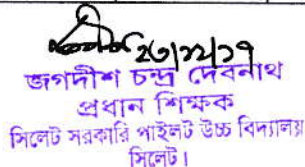 ২৬/১২/১৭
জগদীশ চন্দ্র দেবনাথ
প্রধান শিক্ষক
সিলেট সরকারি পাইলট উচ্চ বিদ্যালয়
সিলেট।